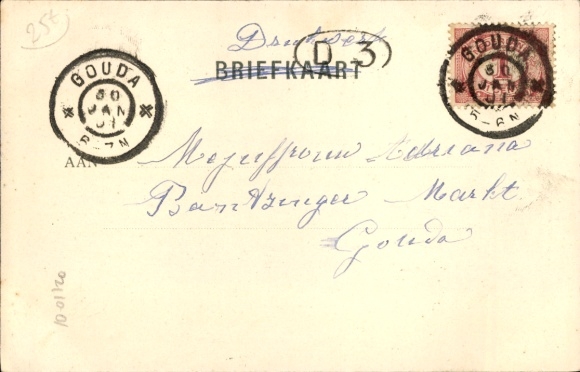 25t
Drukwerk
D 3
BRIEFKAART
GOUDA
30
JAN
01
6-7N
GOUDA
30
JAN
01
5-6N
1
AAN
Mejuffrouw Adriana
Bantzinger Markt
Gouda